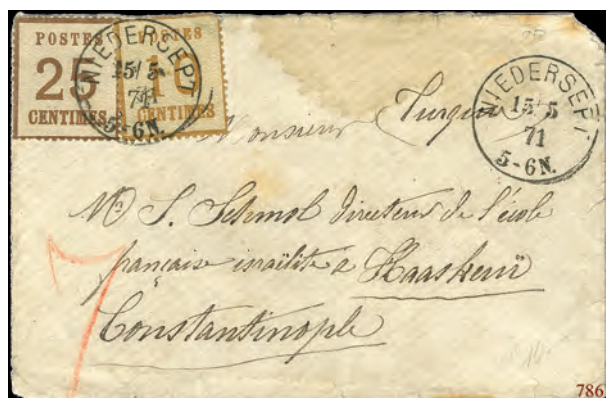 POSTES
25
CENTIMES
POSTES
10
CENTIMES
NIEDERSEPT
15/5
71
5-6N.
NIEDERSEPT
15/5
71
5-6N.
Turquie
Monsieur
Mr S. Schmol Directeur de l'école
française israëlite a Haaskeuï
Constantinople
7
786